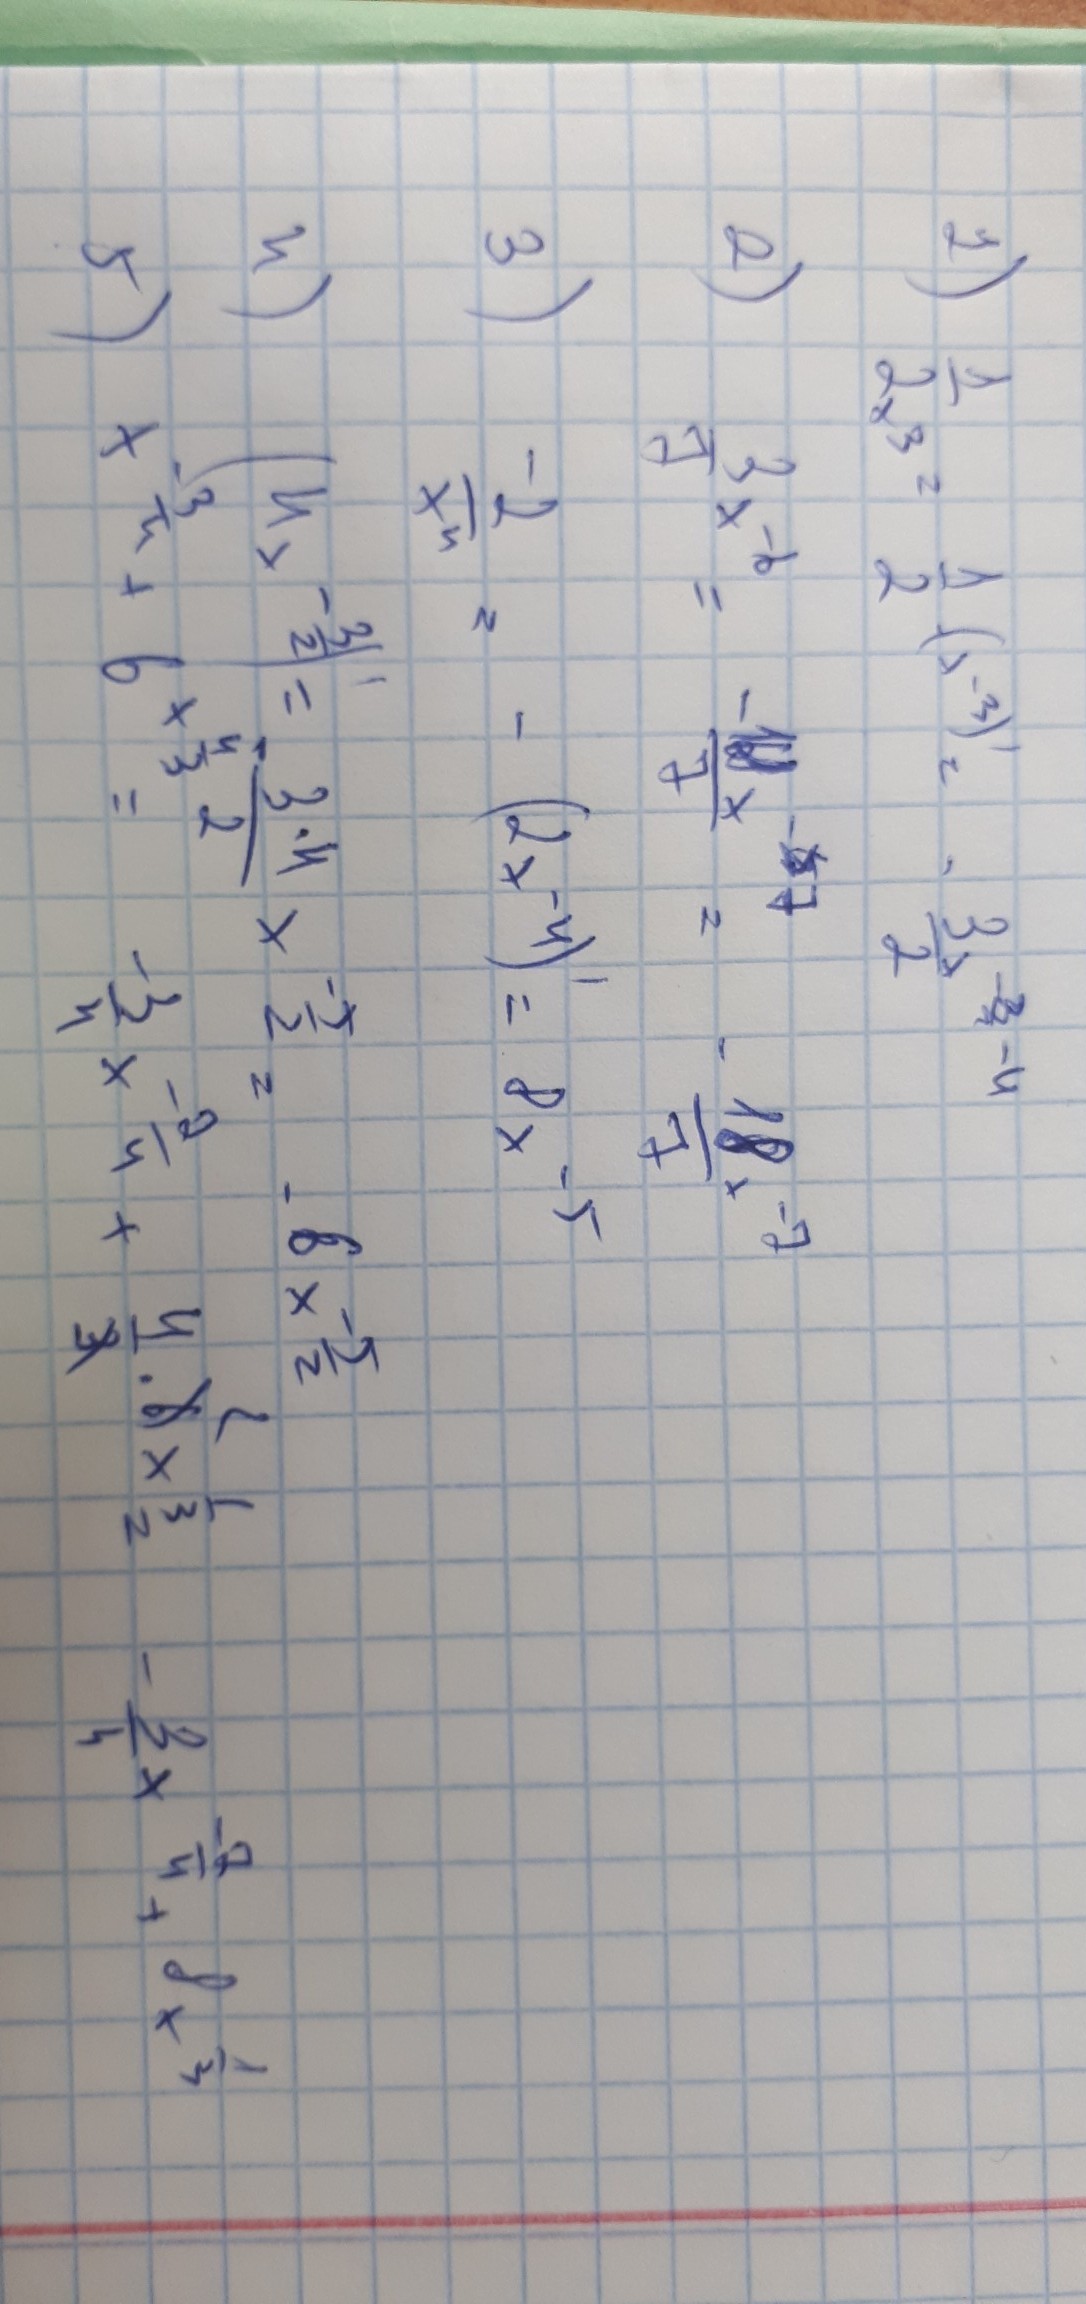 1) 1/2x³ = 1/2 (x⁻³)' = - 3x⁻⁴/2
2) 3/7 x⁻⁶ = -18/7 x⁻⁷ = - 18/7 x⁻⁷
3) -2/x⁴ = - (2x⁻⁴)' = 8x⁻⁵
4) (4x^(-3/2))' = - 3·4/2 x^(-5/2) = - 6x^(-5/2)
5) x^(-3/4) + 6x^(4/3) = -3/4 x^(-7/4) + 4/3 · 6x^(1/3) = - 3/4 x^(-7/4) + 8x^(1/3)